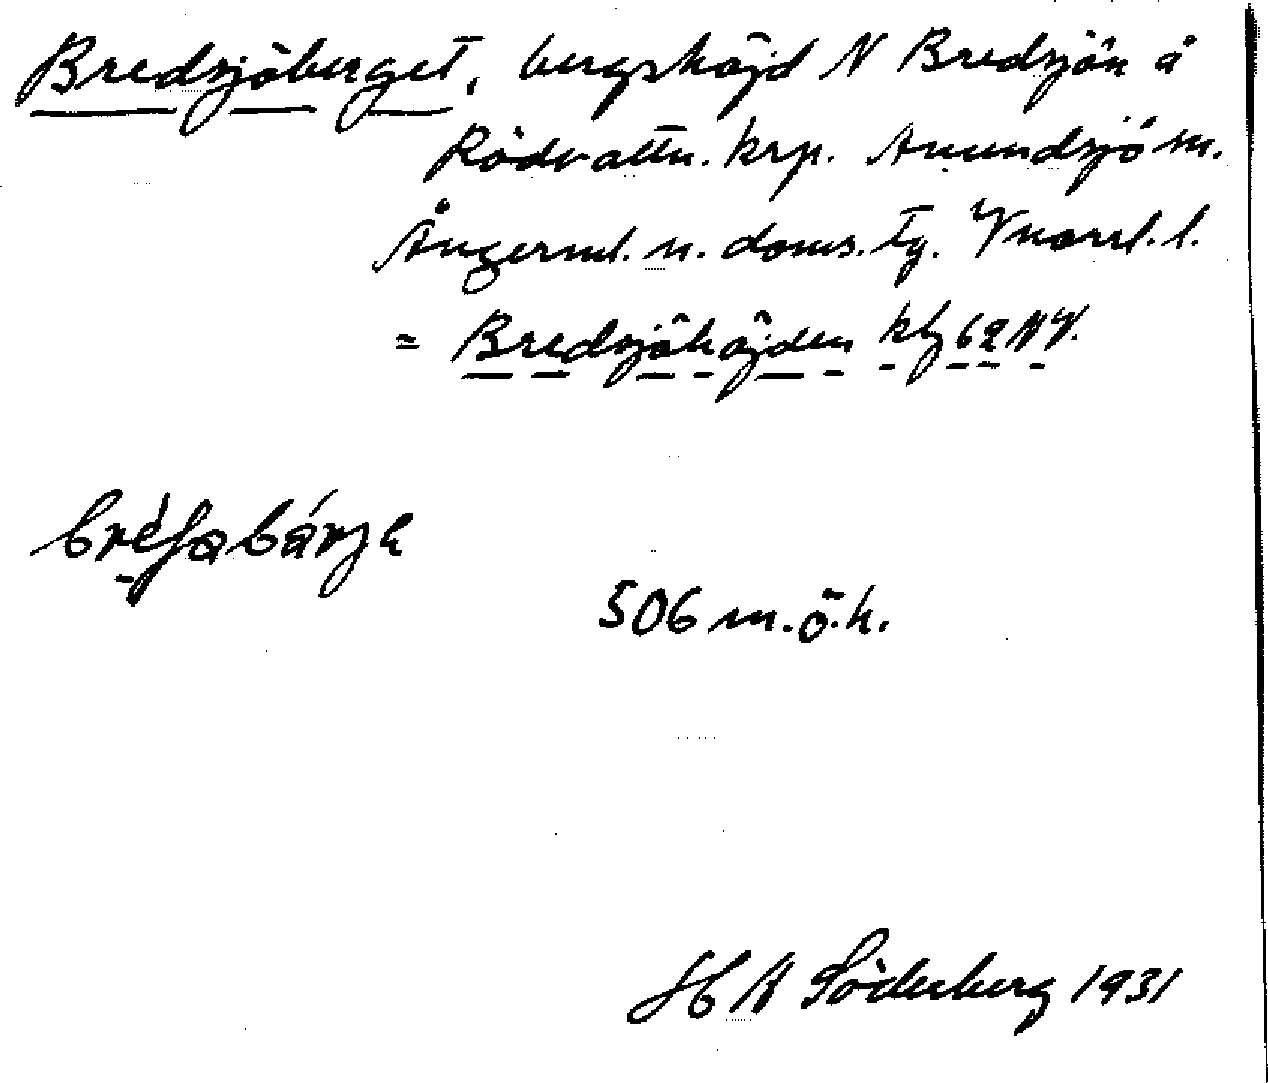 Bredsjöberget, bergshöjd N Bredsjön å
Rödvattn. krp. Anundsjö sn.
Ångerml. n. doms. tg. Vnorrl. l.
= Bredsjöhöjden kbl 62 NV.
506 m. ö. h.
H A Söderberg 1931